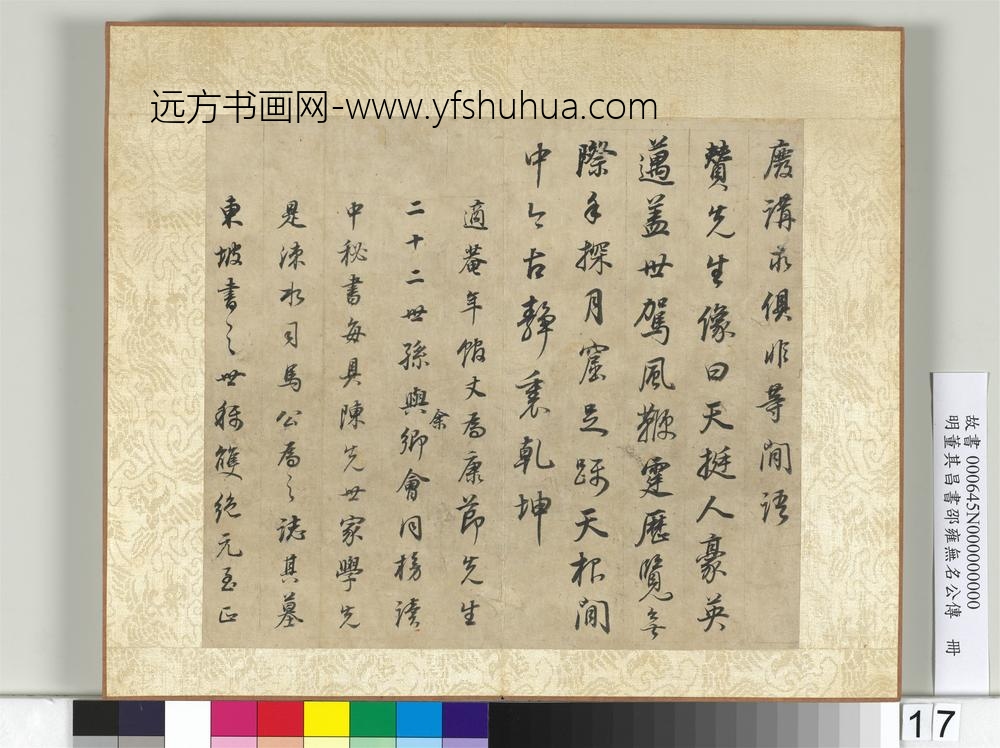 远方书画网-www.yfshuhua.com
廢講求俱非等閒語
贊先生像曰天挺人豪英
邁蓋世駕風鞭霆歷覽無
際手探月窟足躡天根閒
中今古靜裏乾坤
適菴年館丈為康節先生
二十二世孫與余鄉會同榜讀
中秘書每具陳先世家學先
是涑水司馬公為之誌其墓
東坡書之世稱雙絕元至正
故書 000645N000000000
明董其昌書邵雍無名公傳 冊
17